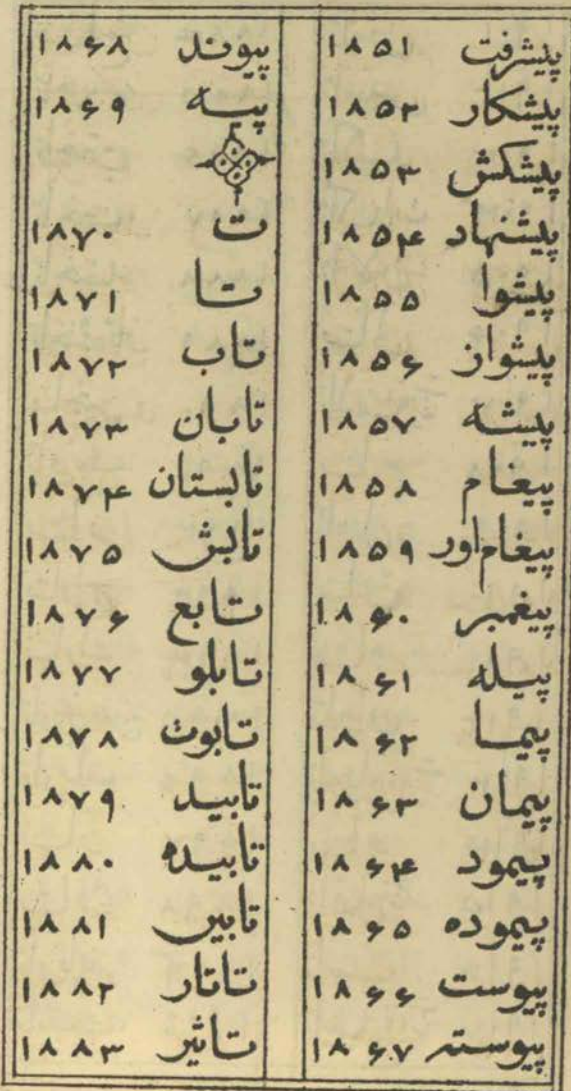 پیشرفت ۱۸۵۱
پیشکار ۱۸۵۲
پیشکش ۱۸۵۳
پیشنهاد ۱۸۵۴
پیشوا ۱۸۵۵
پیشواز ۱۸۵۶
پیشه ۱۸۵۷
پیغام ۱۸۵۸
پیغام‌اور ۱۸۵۹
پیغمبر ۱۸۶۰
پیله ۱۸۶۱
پیما ۱۸۶۲
پیمان ۱۸۶۳
پیمود ۱۸۶۴
پیموده ۱۸۶۵
پیوست ۱۸۶۶
پیوسته ۱۸۶۷
پیوند ۱۸۶۸
پیه ۱۸۶۹
ت ۱۸۷۰
تا ۱۸۷۱
تاب ۱۸۷۲
تابان ۱۸۷۳
تابستان ۱۸۷۴
تابش ۱۸۷۵
تابع ۱۸۷۶
تابلو ۱۸۷۷
تابوت ۱۸۷۸
تابید ۱۸۷۹
تابیده ۱۸۸۰
تابین ۱۸۸۱
تاتار ۱۸۸۲
تاثیر ۱۸۸۳